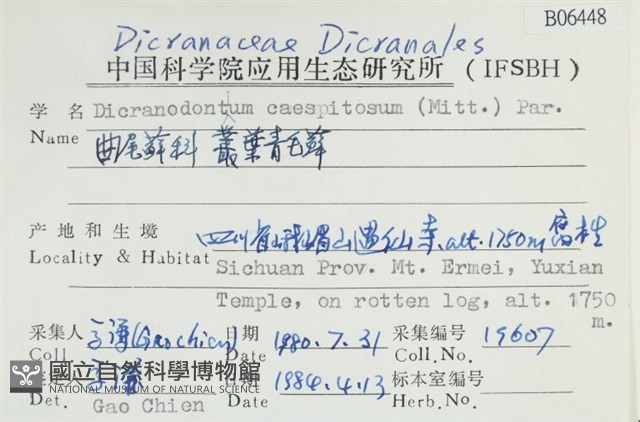 B06448
Dicranaceae Dicranales
中国科学院应用生态研究所 (IFSBH)
学名 Dicranodontum caespitosum (Mitt.) Par.
Name 曲尾蘚科 叢葉青毛蘚
产地和生境 四川省峨嵋山遇仙寺.alt.1750m 腐木
Locality & Habitat Sichuan Prov. Mt. Ermei, Yuxian
Temple, on rotten log, alt. 1750
m.
采集人 (Gao chien) 日期 1980.7.31 采集编号 19607
Coll. Date Coll.No.
國立自然科學博物館 日期 1984.4.13 标本室编号
NATIONAL MUSEUM OF NATURAL SCIENCE
Det. Gao Chien Date Herb.No.